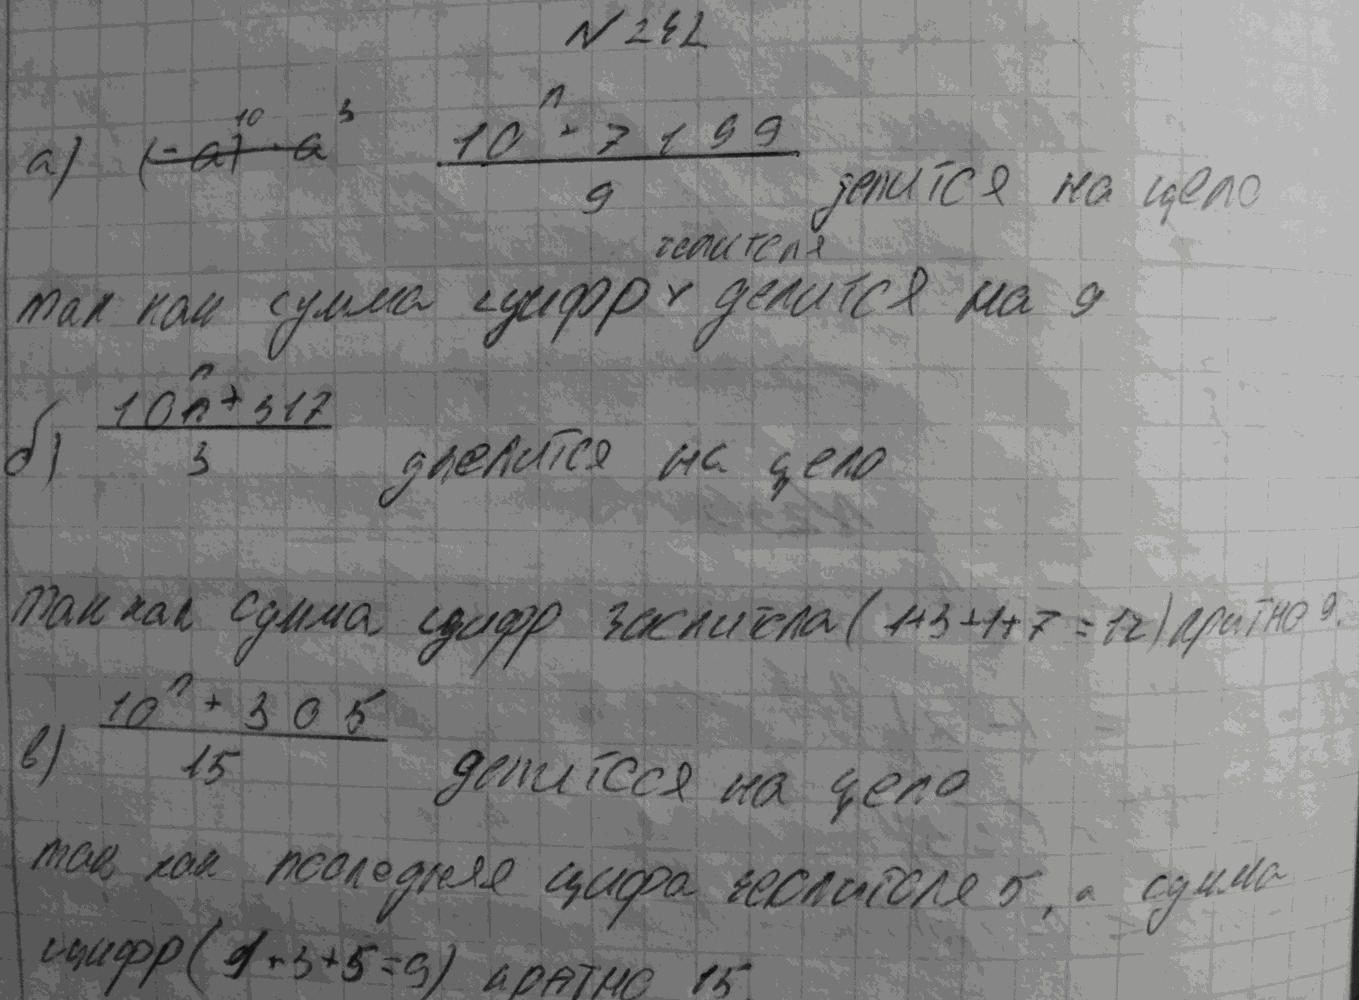 N 242
а) (-a)^10 · a^3 (10^n - 7199)/9 делится на цело
числителя
так как сумма цифр v делится на 9
б) (10^n + 317)/3 делится на цело
так как сумма цифр числителя (1+3+1+7=12) кратно 9.
в) (10^n + 305)/15 делится на цело
так как последняя цифра числителя 5, а сумма
цифр (1+3+5=9) кратно 15